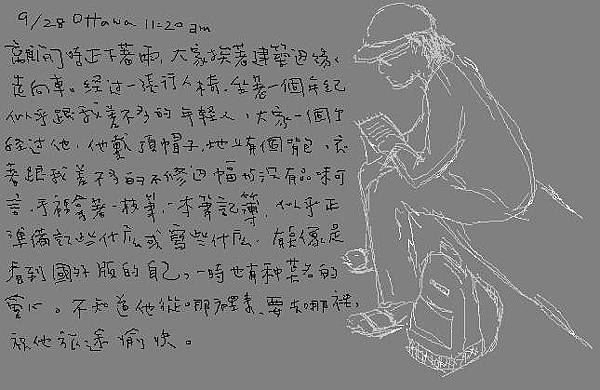 9/28 Ottawa 11:20 am
離開時正下著雨,大家挨著建築边緣,
走向車。經过一張行人椅,坐著一個年紀
似乎跟我差不多的年輕人,大家一個个
經过他,他戴頂帽子,地上有個背包,衣
著跟我差不多的不修边幅或沒有品味可
言,手裡拿著一枝筆,一本筆記簿,似乎正
準備記些什么或寫些什么。有點像是
看到國外版的自己,一時也有种莫名的
會心。不知道他從哪裡來、要去哪裡,
祝他旅途愉快。